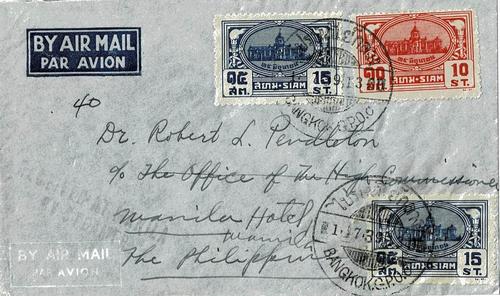 BY AIR MAIL
PAR AVION
๑๕ 15
สต. สยาม-SIAM ST.
๑๐ 10
สต. สยาม-SIAM ST.
BANGKOK.G.P.O.
40
Dr. Robert L. Pendleton
c/o The Office of The High Commissioner
Manila Hotel
Manila
The Philippin
BY AIR MAIL
PAR AVION
๑๕ 15
สต. สยาม-SIAM ST.
BANGKOK.G.P.O.